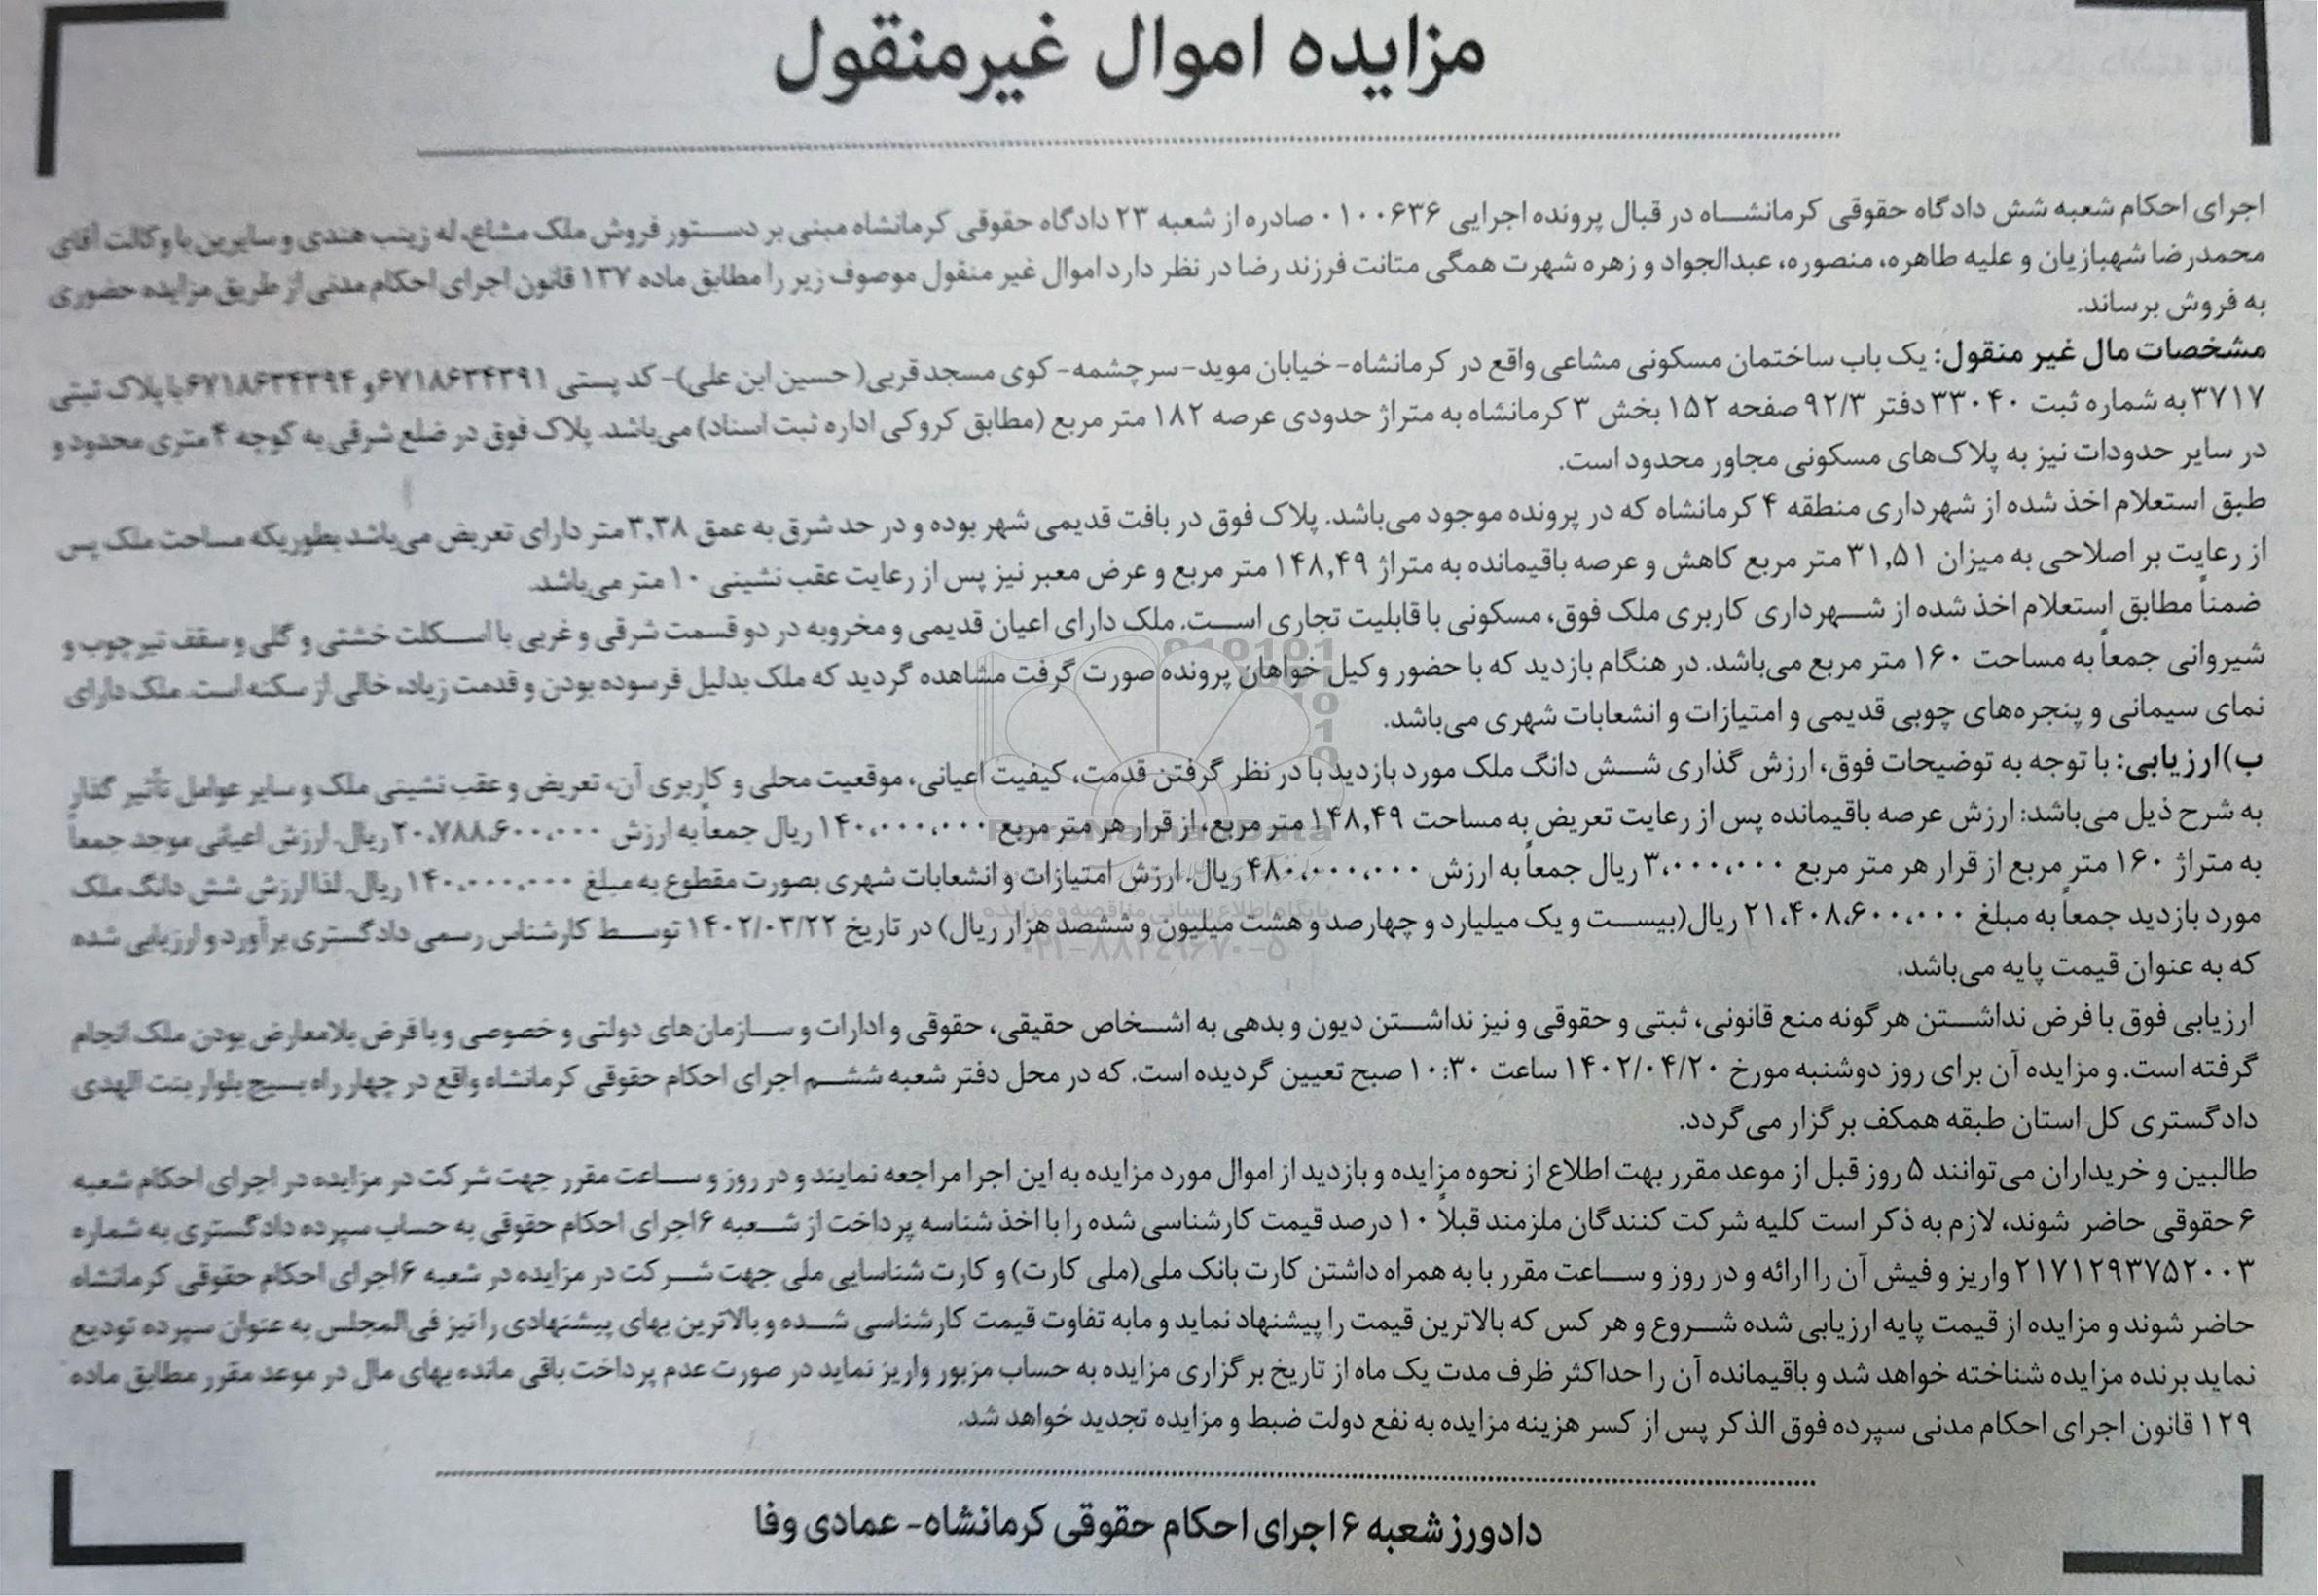 مزایده اموال غیرمنقول
اجرای احکام شعبه شش دادگاه حقوقی کرمانشاه در قبال پرونده اجرایی ۰۱۰۰۶۳۶ صادره از شعبه ۲۳ دادگاه حقوقی کرمانشاه مبنی بر دستور فروش ملک مشاع، له زینب هندی و سایرین با وکالت آقای
محمدرضا شهبازیان و علیه طاهره، منصوره، عبدالجواد و زهره شهرت همگی متانت فرزند رضا در نظر دارد اموال غیر منقول موصوف زیر را مطابق ماده ۱۳۷ قانون اجرای احکام مدنی از طریق مزایده حضوری
به فروش برساند.
مشخصات مال غیر منقول: یک باب ساختمان مسکونی مشاعی واقع در کرمانشاه- خیابان موید- سرچشمه- کوی مسجد قربی( حسین ابن علی)- کد پستی ۶۷۱۸۶۳۴۳۹۱ و ۶۷۱۸۶۳۴۳۹۴ با پلاک ثبتی
۳۷۱۷ به شماره ثبت ۳۳۰۴۰ دفتر ۹۲/۳ صفحه ۱۵۲ بخش ۳ کرمانشاه به متراژ حدودی عرصه ۱۸۲ متر مربع (مطابق کروکی اداره ثبت اسناد) می‌باشد. پلاک فوق در ضلع شرقی به کوچه ۴ متری محدود و
در سایر حدودات نیز به پلاک‌های مسکونی مجاور محدود است.
طبق استعلام اخذ شده از شهرداری منطقه ۴ کرمانشاه که در پرونده موجود می‌باشد. پلاک فوق در بافت قدیمی شهر بوده و در حد شرق به عمق ۳,۳۸ متر دارای تعریض می‌باشد بطوریکه مساحت ملک پس
از رعایت بر اصلاحی به میزان ۳۱,۵۱ متر مربع کاهش و عرصه باقیمانده به متراژ ۱۴۸,۴۹ متر مربع و عرض معبر نیز پس از رعایت عقب نشینی ۱۰ متر می‌باشد.
ضمناً مطابق استعلام اخذ شده از شهرداری کاربری ملک فوق، مسکونی با قابلیت تجاری است. ملک دارای اعیان قدیمی و مخروبه در دو قسمت شرقی و غربی با اسکلت خشتی و گلی و سقف تیرچوب و
شیروانی جمعاً به مساحت ۱۶۰ متر مربع می‌باشد. در هنگام بازدید که با حضور وکیل خواهان پرونده صورت گرفت مشاهده گردید که ملک بدلیل فرسوده بودن و قدمت زیاد، خالی از سکنه است. ملک دارای
نمای سیمانی و پنجره‌های چوبی قدیمی و امتیازات و انشعابات شهری می‌باشد.
ب)ارزیابی: با توجه به توضیحات فوق، ارزش گذاری شش دانگ ملک مورد بازدید با در نظر گرفتن قدمت، کیفیت اعیانی، موقعیت محلی و کاربری آن، تعریض و عقب نشینی ملک و سایر عوامل تأثیر گذار
به شرح ذیل می‌باشد: ارزش عرصه باقیمانده پس از رعایت تعریض به مساحت ۱۴۸,۴۹ متر مربع، از قرار هر متر مربع ۱۴۰،۰۰۰،۰۰۰ ریال جمعاً به ارزش ۲۰،۷۸۸،۶۰۰،۰۰۰ ریال. ارزش اعیانی موجد جمعاً
به متراژ ۱۶۰ متر مربع از قرار هر متر مربع ۳،۰۰۰،۰۰۰ ریال جمعاً به ارزش ۴۸۰،۰۰۰،۰۰۰ ریال. ارزش امتیازات و انشعابات شهری بصورت مقطوع به مبلغ ۱۴۰،۰۰۰،۰۰۰ ریال. لذا ارزش شش دانگ ملک
مورد بازدید جمعاً به مبلغ ۲۱،۴۰۸،۶۰۰،۰۰۰ ریال(بیست و یک میلیارد و چهارصد و هشت میلیون و ششصد هزار ریال) در تاریخ ۱۴۰۲/۰۳/۲۲ توسط کارشناس رسمی دادگستری برآورد و ارزیابی شده
که به عنوان قیمت پایه می‌باشد.
ارزیابی فوق با فرض نداشتن هرگونه منع قانونی، ثبتی و حقوقی و نیز نداشتن دیون و بدهی به اشخاص حقیقی، حقوقی و ادارات و سازمان‌های دولتی و خصوصی و با فرض بلامعارض بودن ملک انجام
گرفته است. و مزایده آن برای روز دوشنبه مورخ ۱۴۰۲/۰۴/۲۰ ساعت ۱۰:۳۰ صبح تعیین گردیده است. که در محل دفتر شعبه ششم اجرای احکام حقوقی کرمانشاه واقع در چهار راه بسیج بلوار بنت الهدی
دادگستری کل استان طبقه همکف برگزار می‌گردد.
طالبین و خریداران می‌توانند ۵ روز قبل از موعد مقرر بهت اطلاع از نحوه مزایده و بازدید از اموال مورد مزایده به این اجرا مراجعه نمایند و در روز و ساعت مقرر جهت شرکت در مزایده در اجرای احکام شعبه
۶ حقوقی حاضر شوند، لازم به ذکر است کلیه شرکت کنندگان ملزمند قبلاً ۱۰ درصد قیمت کارشناسی شده را با اخذ شناسه پرداخت از شعبه ۶ اجرای احکام حقوقی به حساب سپرده دادگستری به شماره
۲۱۷۱۲۹۳۷۵۲۰۰۳ واریز و فیش آن را ارائه و در روز و ساعت مقرر با به همراه داشتن کارت بانک ملی(ملی کارت) و کارت شناسایی ملی جهت شرکت در مزایده در شعبه ۶ اجرای احکام حقوقی کرمانشاه
حاضر شوند و مزایده از قیمت پایه ارزیابی شده شروع و هر کس که بالاترین قیمت را پیشنهاد نماید و مابه تفاوت قیمت کارشناسی شده و بالاترین بهای پیشنهادی را نیز فی‌المجلس به عنوان سپرده تودیع
نماید برنده مزایده شناخته خواهد شد و باقیمانده آن را حداکثر ظرف مدت یک ماه از تاریخ برگزاری مزایده به حساب مزبور واریز نماید در صورت عدم پرداخت باقی مانده بهای مال در موعد مقرر مطابق ماده
۱۲۹ قانون اجرای احکام مدنی سپرده فوق الذکر پس از کسر هزینه مزایده به نفع دولت ضبط و مزایده تجدید خواهد شد.
دادورز شعبه ۶ اجرای احکام حقوقی کرمانشاه- عمادی وفا